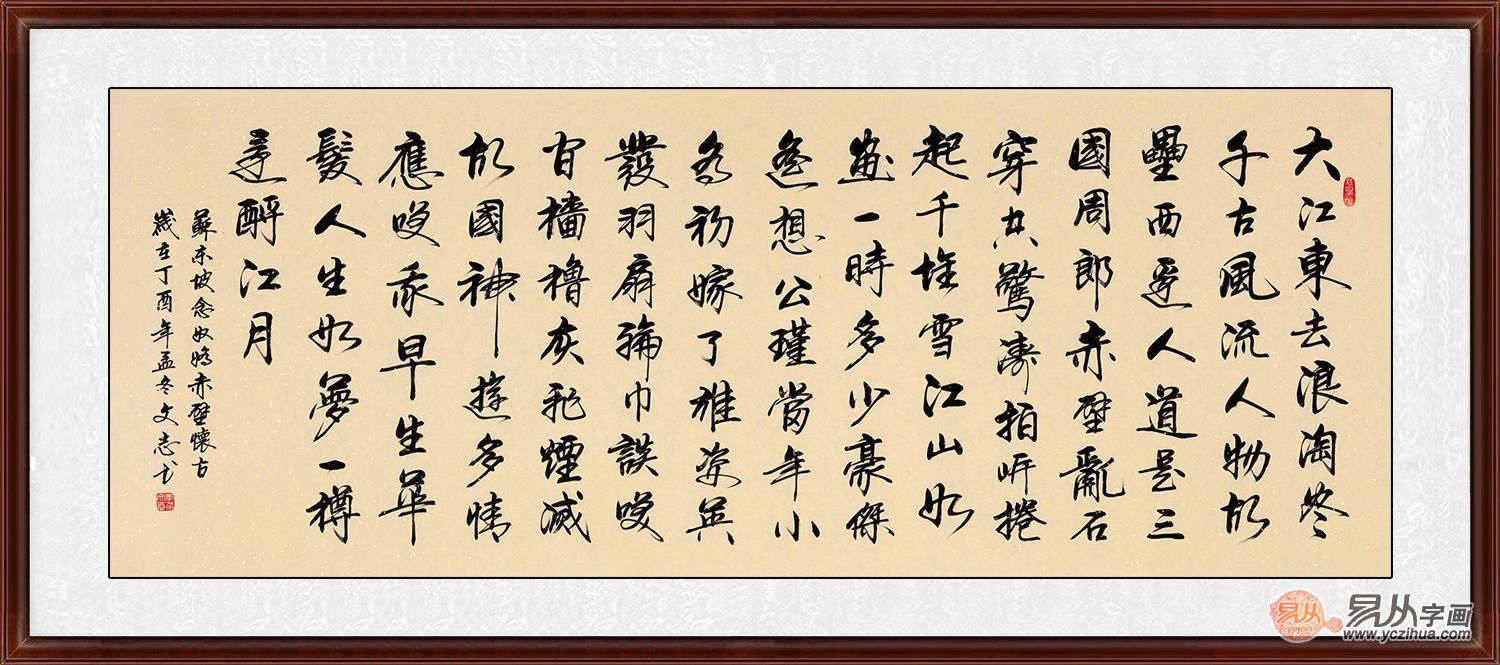 大江東去浪淘盡
千古風流人物故
壘西邊人道是三
國周郎赤壁亂石
穿空驚濤拍岸捲
起千堆雪江山如
畫一時多少豪傑
遙想公瑾當年小
喬初嫁了雄姿英
發羽扇綸巾談笑
間檣櫓灰飛煙滅
故國神遊多情
應笑我早生華
髮人生如夢一樽
還酹江月
蘇東坡念奴嬌赤壁懷古
歲在丁酉年孟冬文志書
易从
易从字画
www.yczihua.com